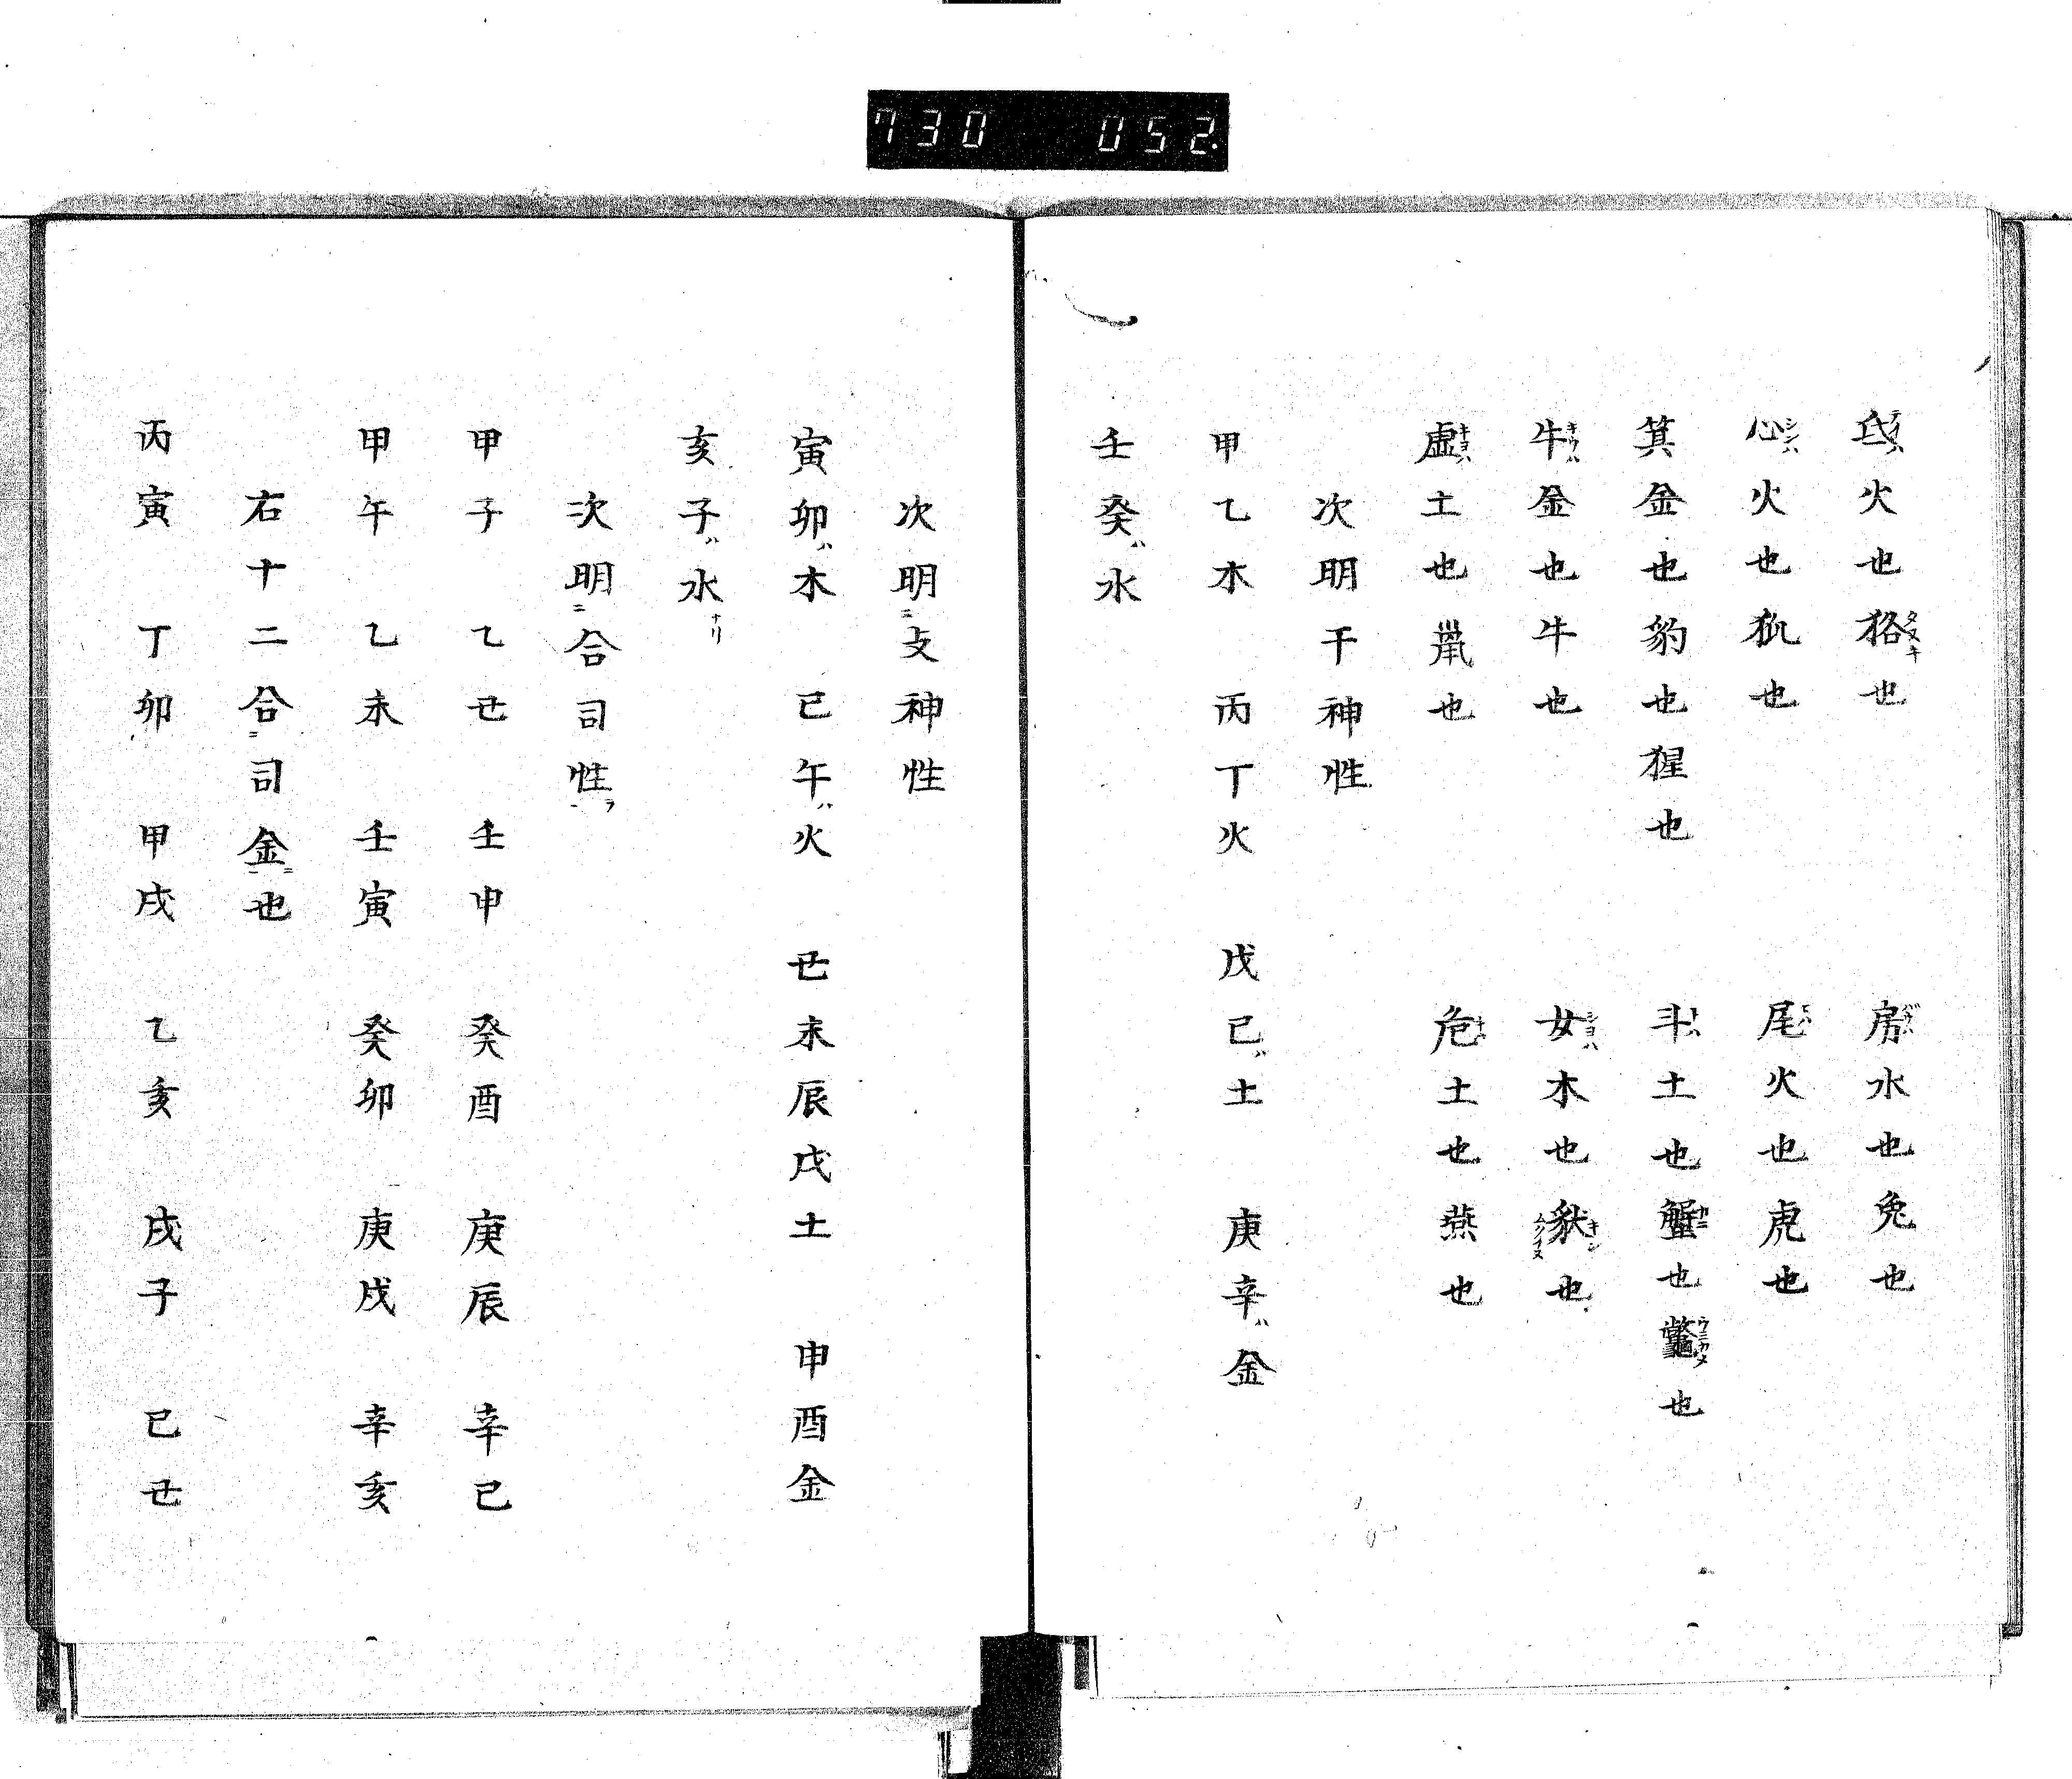 730 052
氐火也狢也 房水也兔也
心火也狐也 尾火也虎也
箕金也豹也猩也 斗土也蟹也鼈也
牛金也牛也 女木也㺄也
虚土也鼠也 危土也燕也
次明干神性
甲乙木 丙丁火 戊己ハ土 庚辛ハ金
壬癸ハ水
次明支神性
寅卯ハ木 巳午ハ火 丑未辰戌土 申酉金
亥子ハ水ナリ
次明合司性ヲ
甲子 乙丑 壬申 癸酉 庚辰 辛巳
甲午 乙未 壬寅 癸卯 庚戌 辛亥
右十二合司金也
丙寅 丁卯 甲戌 乙亥 戊子 己丑